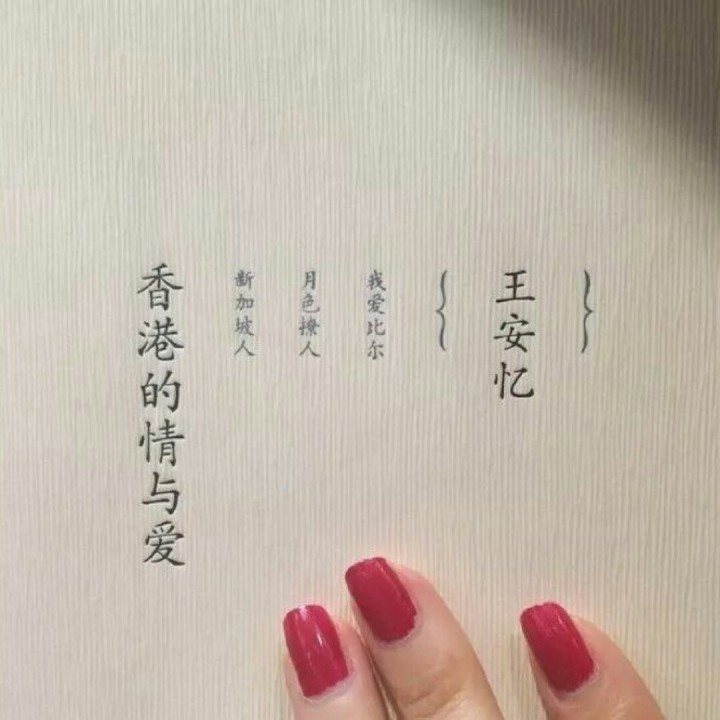 香港的情与爱
新加坡人
月色撩人
我爱比尔
{王安忆}